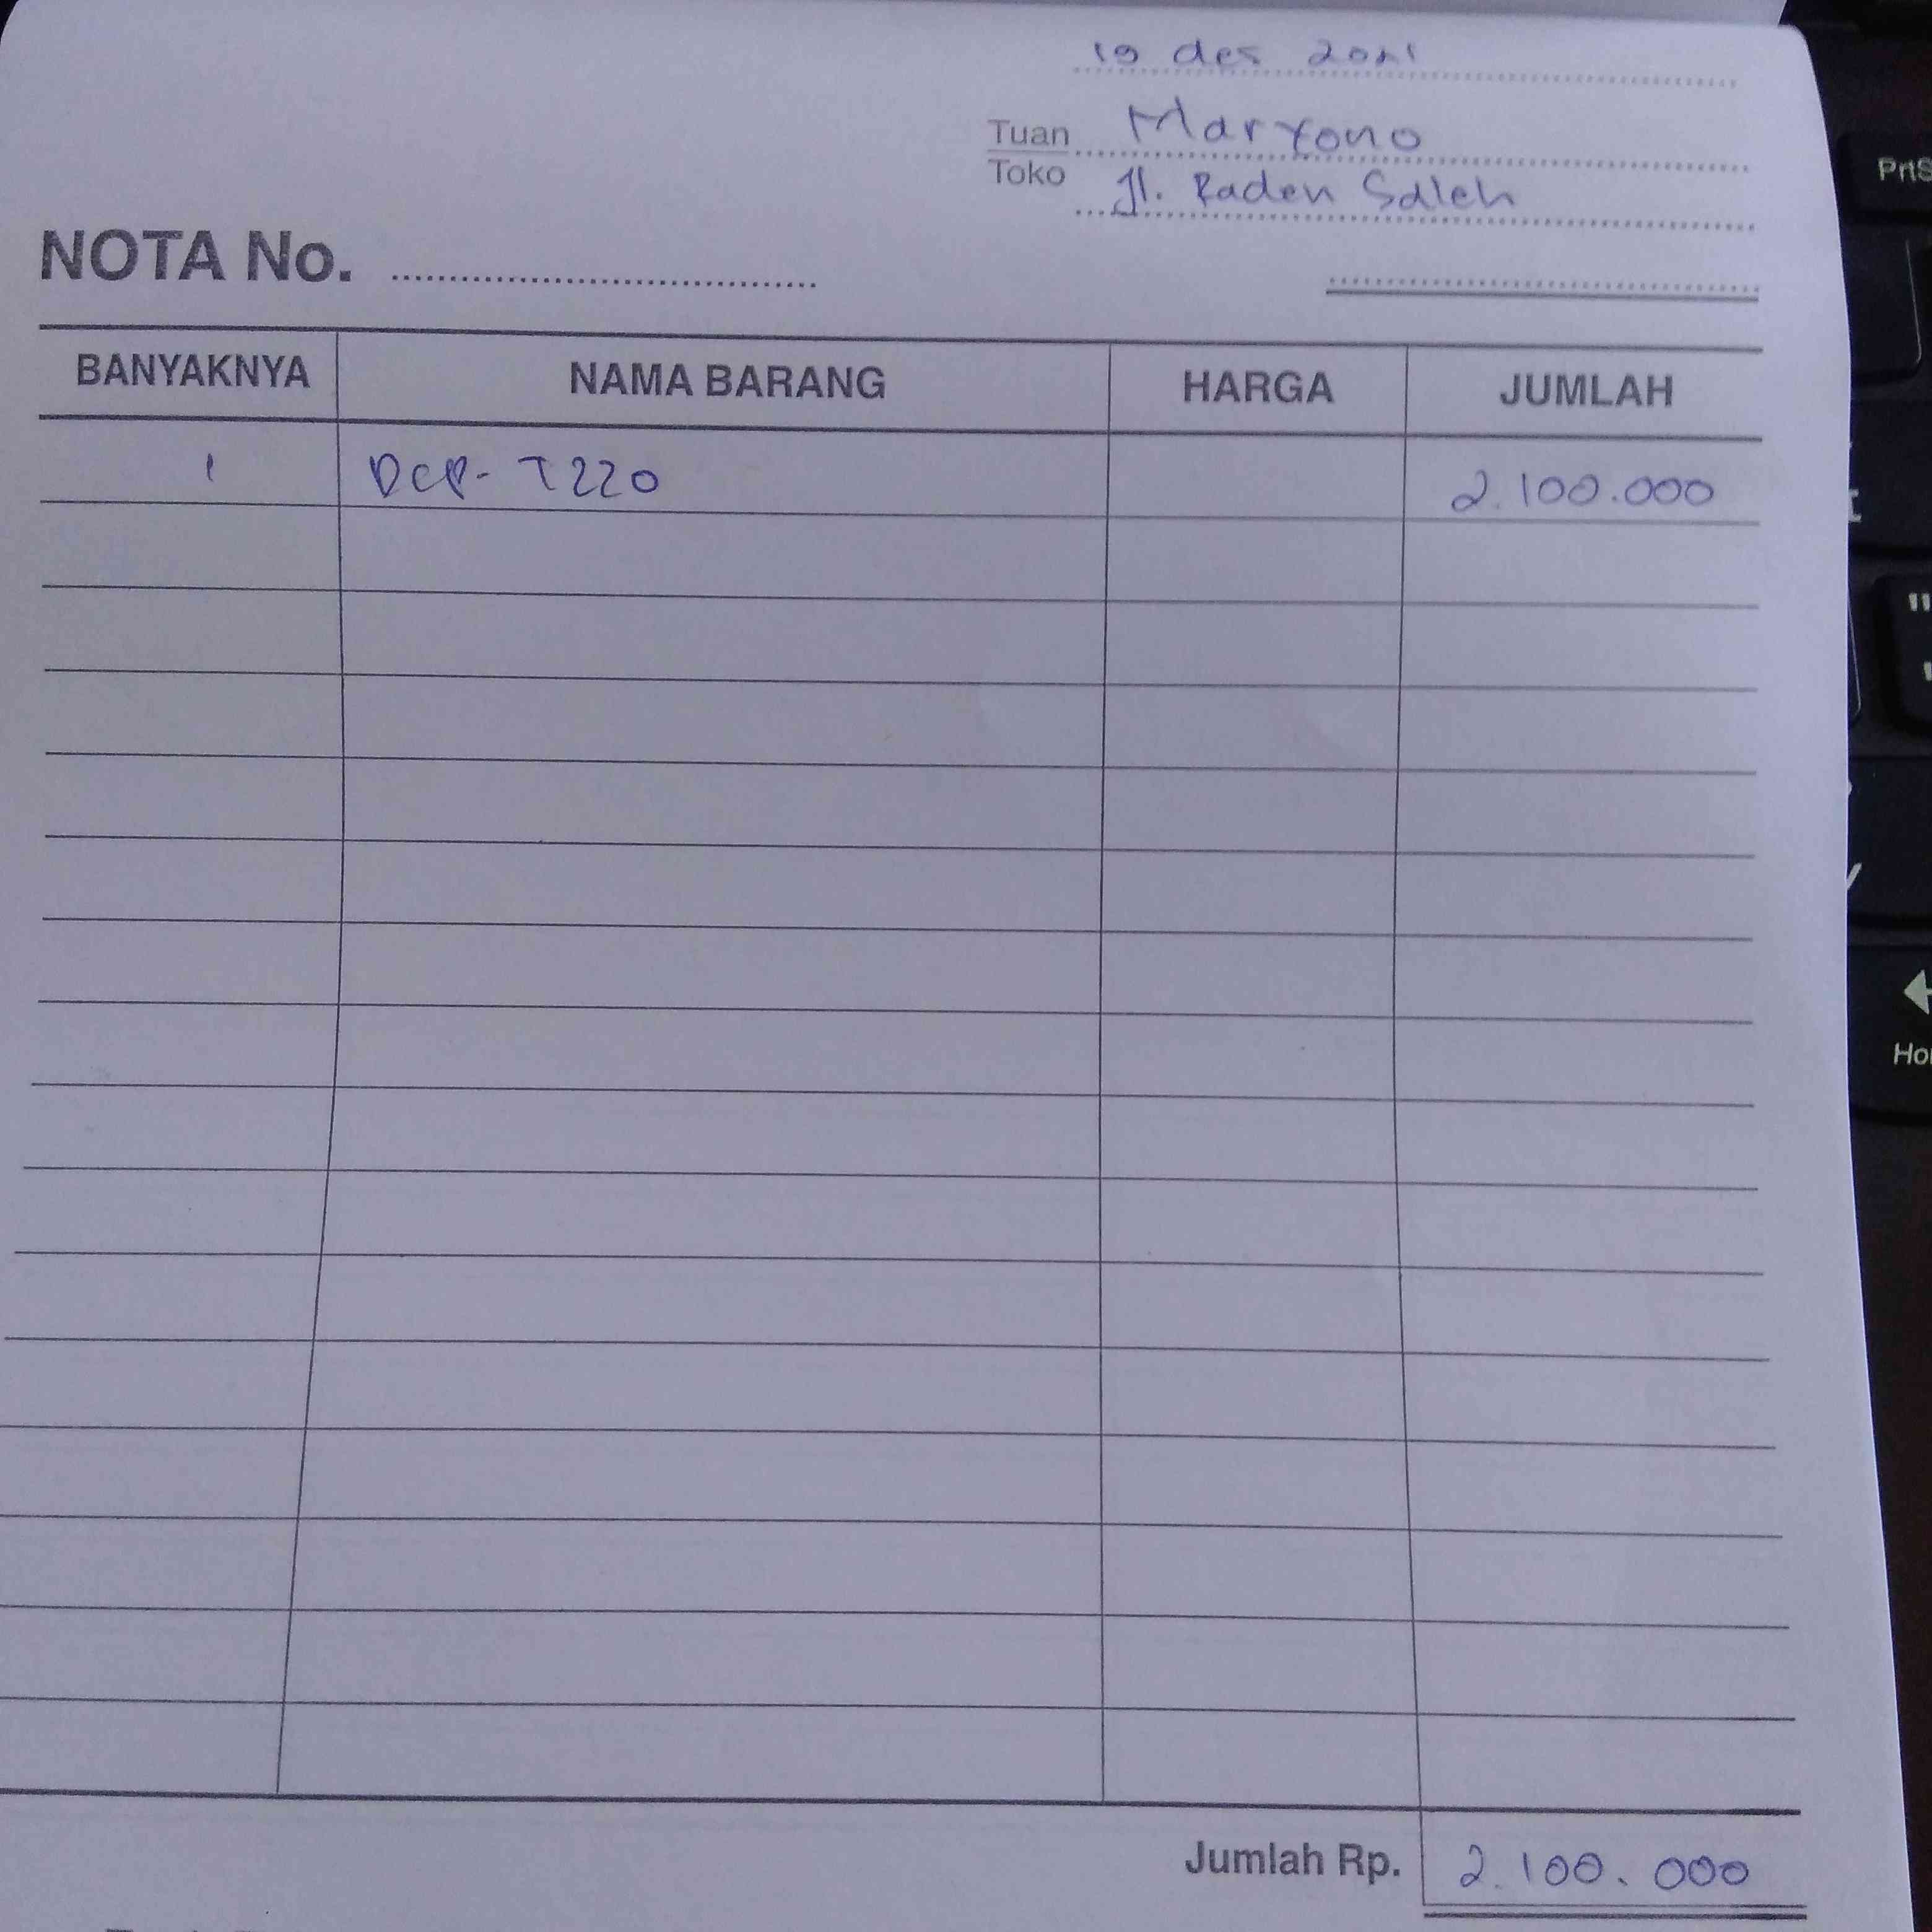 19 des 2021
Tuan Maryono
Toko Jl. Raden Saleh
NOTA No.
BANYAKNYA NAMA BARANG HARGA JUMLAH
1 DCP- T220 2.100.000
Jumlah Rp. 2.100.000
PrtS
"
Ho